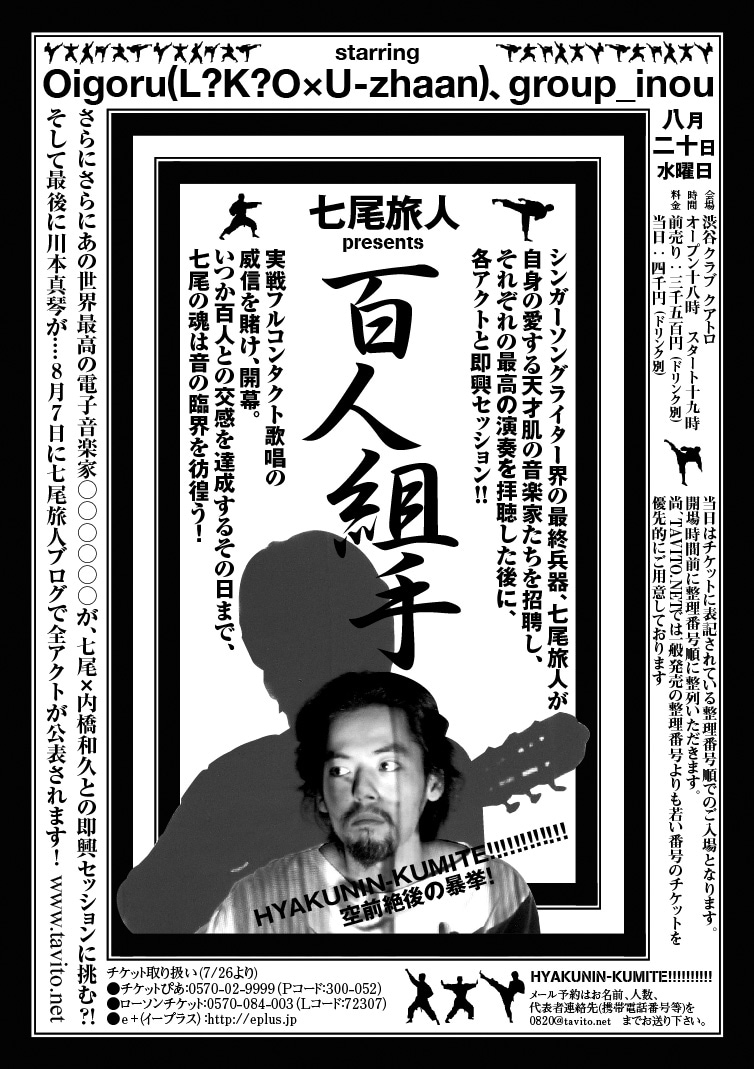 starring
Oigoru(L?K?O×U-zhaan)、group_inou
八月
二十日
水曜日
会場 渋谷クラブ クアトロ
時間 オープン十八時 スタート十九時
料金 前売り：三千五百円（ドリンク別）
当日：四千円（ドリンク別）
当日はチケットに表記されている整理番号順でのご入場となります。
開場時間前に整理番号順に整列いただきます。
尚、TAVITO.NETでは一般発売の整理番号よりも若い番号のチケットを
優先的にご用意しております
七尾旅人
presents
百人組手
シンガーソングライター界の最終兵器、七尾旅人が
自身の愛する天才肌の音楽家たちを招聘し、
それぞれの最高の演奏を拝聴した後に、
各アクトと即興セッション!!
実戦フルコンタクト歌唱の
威信を賭け、開幕。
いつか百人との交感を達成するその日まで、
七尾の魂は音の臨界を彷徨う！
HYAKUNIN-KUMITE!!!!!!!!!!!!!
空前絶後の暴挙!
さらにさらにあの世界最高の電子音楽家〇〇〇〇〇〇が、七尾×内橋和久との即興セッションに挑む?!
そして最後に川本真琴が……8月7日に七尾旅人ブログで全アクトが公表されます！ www.tavito.net
チケット取り扱い(7/26より)
●チケットぴあ:0570-02-9999(Pコード:300-052)
●ローソンチケット:0570-084-003(Lコード:72307)
●e+(イープラス):http://eplus.jp
HYAKUNIN-KUMITE!!!!!!!!!!
メール予約はお名前、人数、
代表者連絡先(携帯電話番号等)を
0820@tavito.net までお送り下さい。